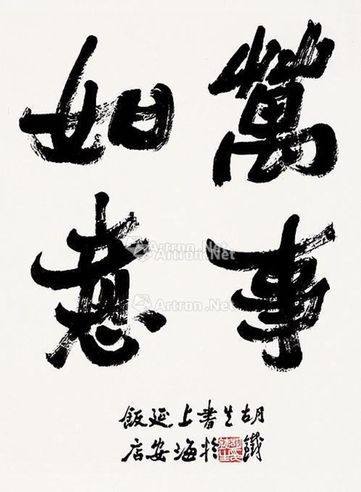 萬事
如意
胡鐵
生
書於
上海
延安
飯店
Artron.Net
Artron.Net
Artron.Net
Artron.Net